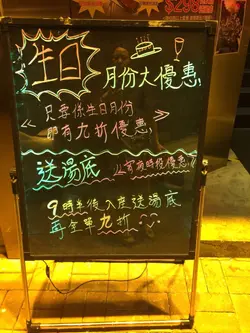 生日
月份大優惠
只要係生日月份
即有九折優惠
送湯底
《宵夜時段優惠》
9時半後入座送湯底
再全單九折
$298